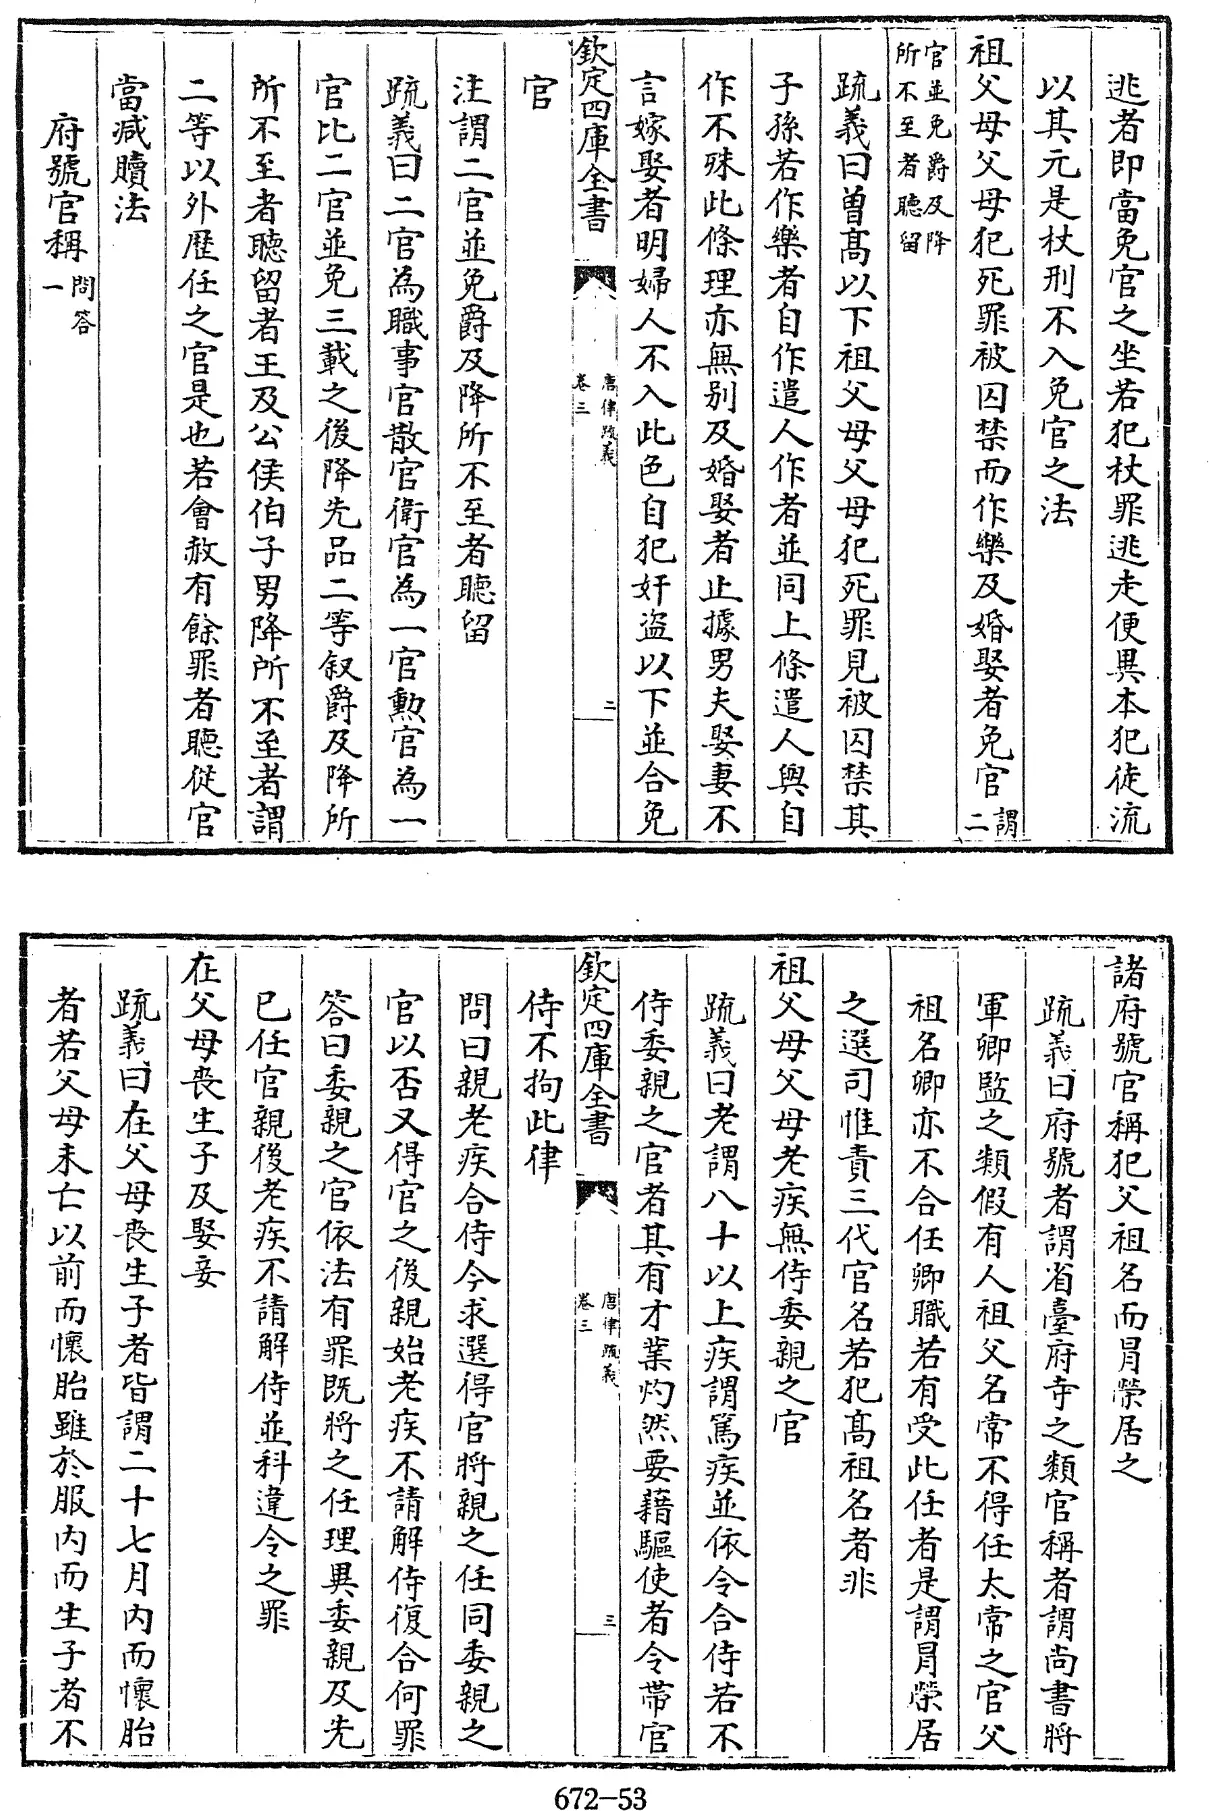 逃者即當免官之坐若犯杖罪逃走便異本犯徒流
以其元是杖刑不入免官之法
祖父母父母犯死罪被囚禁而作樂及婚娶者免官謂二
官並免爵及降
所不至者聽留
疏義曰曽髙以下祖父母父母犯死罪見被囚禁其
子孫若作樂者自作遣人作者並同上條遣人與自
作不殊此條理亦無別及婚娶者止據男夫娶妻不
言嫁娶者明婦人不入此色自犯奸盗以下並合免
欽定四庫全書
唐律疏義
卷三
二
官
注謂二官並免爵及降所不至者聽留
疏義曰二官為職事官散官衛官為一官勲官為一
官比二官並免三載之後降先品二等叙爵及降所
所不至者聽留者王及公侯伯子男降所不至者謂
二等以外歴任之官是也若會赦有餘罪者聽從官
當減贖法
府號官稱問答一
諸府號官稱犯父祖名而冐榮居之
疏義曰府號者謂省臺府寺之類官稱者謂尚書將
軍卿監之類假有人祖父名常不得任太常之官父
祖名卿亦不合任卿職若有受此任者是謂冐榮居
之選司惟責三代官名若犯髙祖名者非
祖父母父母老疾無侍委親之官
疏義曰老謂八十以上疾謂篤疾並依令合侍若不
侍委親之官者其有才業灼然要藉驅使者令帶官
欽定四庫全書
唐律疏義
卷三
三
侍不拘此律
問曰親老疾合侍今求選得官將親之任同委親之
官以否又得官之後親始老疾不請解侍復合何罪
答曰委親之官依法有罪既將之任理異委親及先
已任官親後老疾不請解侍並科違令之罪
在父母喪生子及娶妾
疏義曰在父母喪生子者皆謂二十七月内而懷胎
者若父母未亡以前而懷胎雖於服内而生子者不
672-53